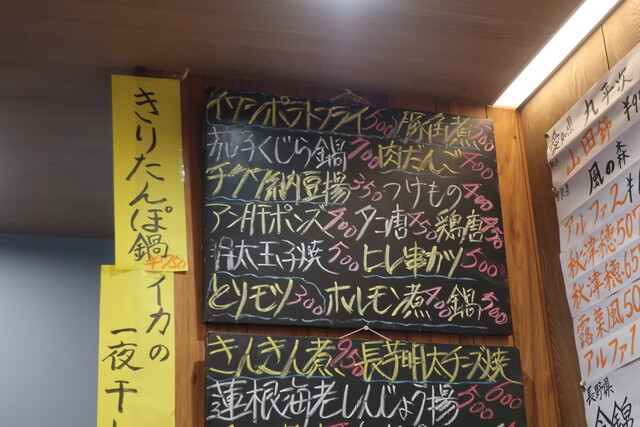 きりたんぽ鍋
¥750
イカの
一夜干
ポテトフライ 500 豚角煮 500
くじら鍋 700 肉だんご 400
チクワ納豆揚 350 つけもの 400
アン肝ポンズ 700 タコ唐 750 鶏唐 450
明太玉子焼 500 ヒレ串カツ 500
とりモツ 300 ホルモン煮 400 鍋 500
きんきん煮 950 長芋明太チーズ焼 600
蓮根海老しんじょう揚 500
愛知県
九平次
山田錦
風の森
アルファ2
秋津穂50
秋津穂65
露葉風50
アルファ1
長野県